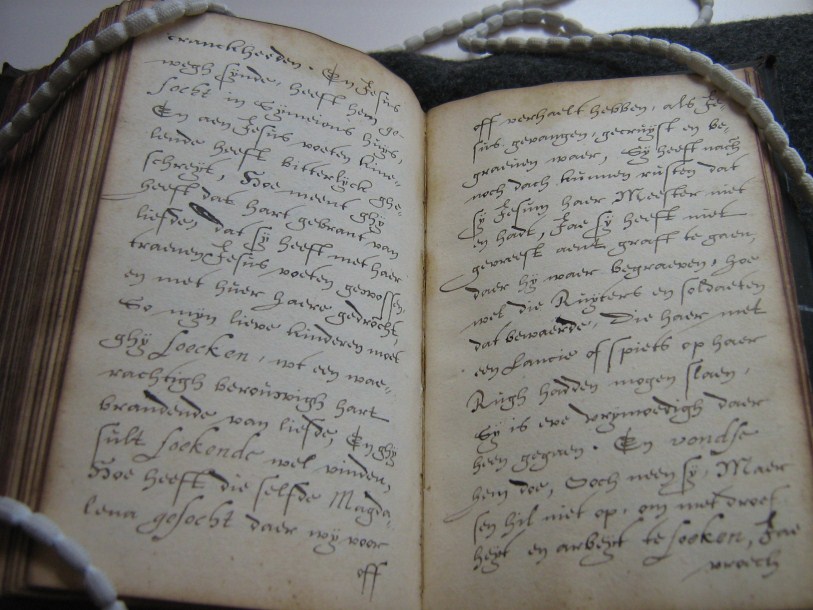 cranckheeden. En Jesus
wegh sÿnde, heeft hem ge-
socht in Sÿmeions huÿs,
En aen Jesus voeten knie-
lende heeft bitterlÿck ghe-
schreÿt, Hoe meent ghÿ
heeft dat hart gebrant van
liefde, dat sÿ heeft met haer
traenen Jesus voeten gewossen,
en met huer haere gedrocht,
So mÿn lieve kinderen moet
ghÿ soecken, wt een wae-
rachtigh berouwigh hart
brandende van liefde, En ghÿ
sult soekende wel vinden,
Hoe heeft die selfde Magda-
lena gesocht daer wÿ voor
off
off verhaelt hebben, als Je-
sus gevangen, gecruÿst en be-
graeven waer, Sÿ heeft nach
noch dach kunnen rusten dat
sÿ Jesum haer Meester niet
en hadt, Jae sÿ heeft niet
gevreest aent graff te gaen,
daer hÿ waer begraeven, hoe
wel die Ruÿters en soldaeten
dat bewaerde, Die haer met
een Lancie of spiets op haer
Rugh hadden mogen slaen,
Sÿ is eve vrÿmoedigh daer
heen gegaen. En vondse
hem doe, Och neen sÿ, Maer
sen hil niet op, om met droef
heÿt en arbeÿt te soeken, Jae
vraech